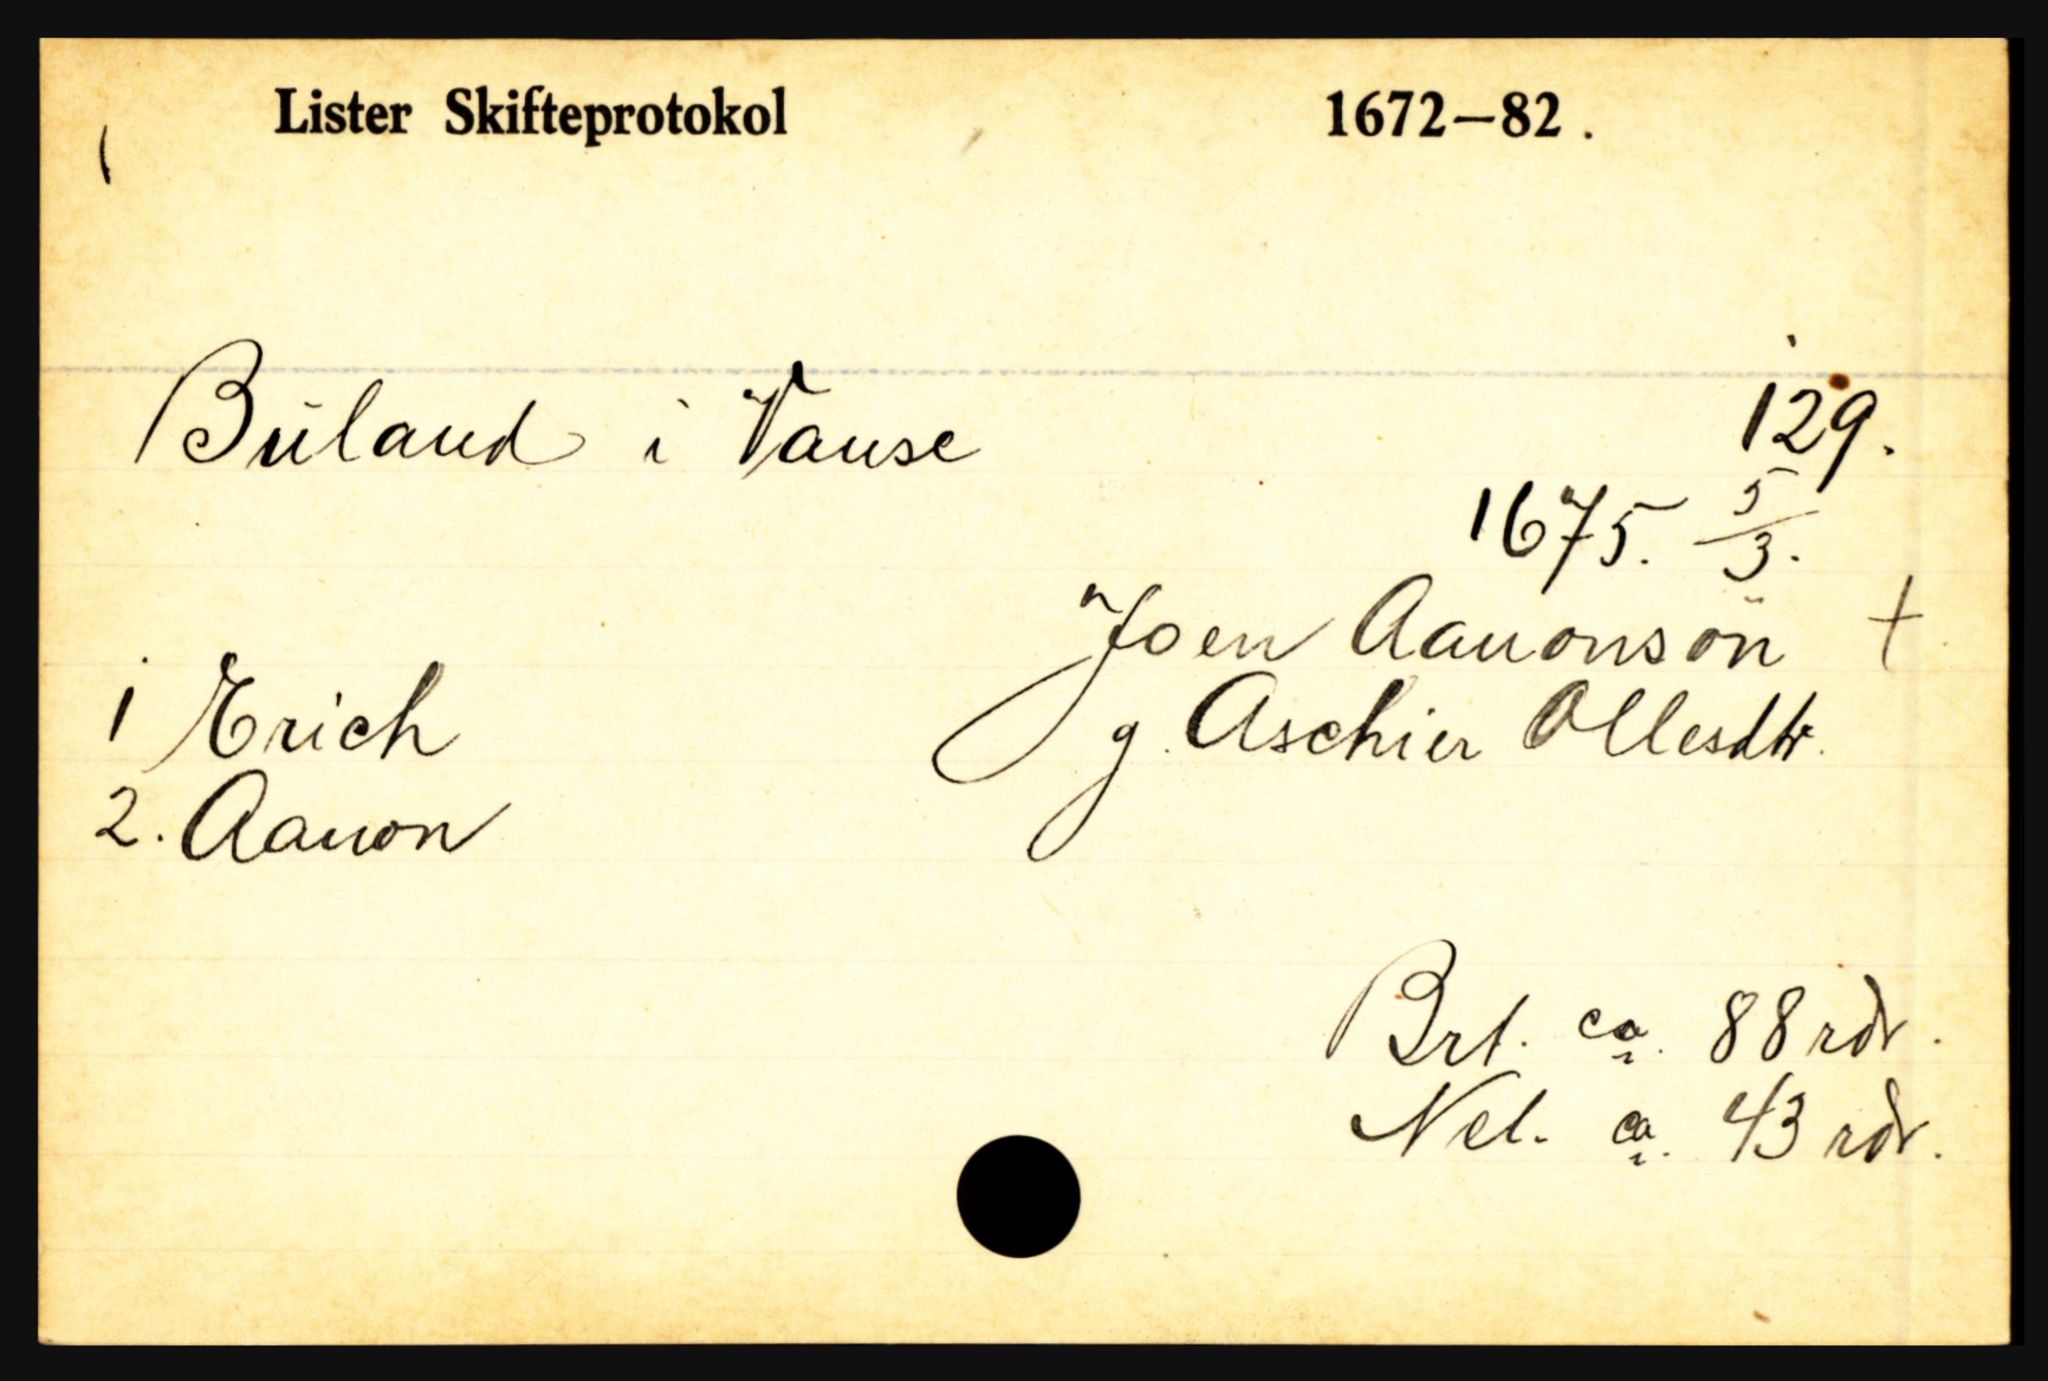 Lister Skifteprotokol 1672–82.
Büland i Vanse 129.
1675. 5/3.
Joen Aanonsön +
1 Erich g. Aschier Ollesdtr.
2. Aanon
Brt. ca. 88 rdr.
Net. ca. 43 rdr.